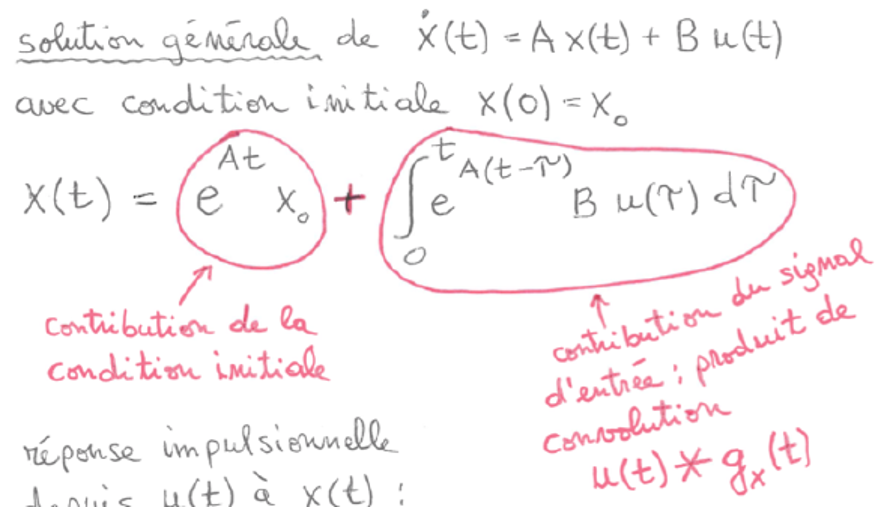 solution générale de ẋ(t) = A x(t) + B u(t)
avec condition initiale x(0) = x₀
x(t) = e^{At} x₀ + ∫₀ᵗ e^{A(t-τ)} B u(τ) dτ
contribution de la
condition initiale
contribution du signal
d'entrée : produit de
convolution
u(t) * gₓ(t)
réponse impulsionnelle
depuis u(t) à x(t) :